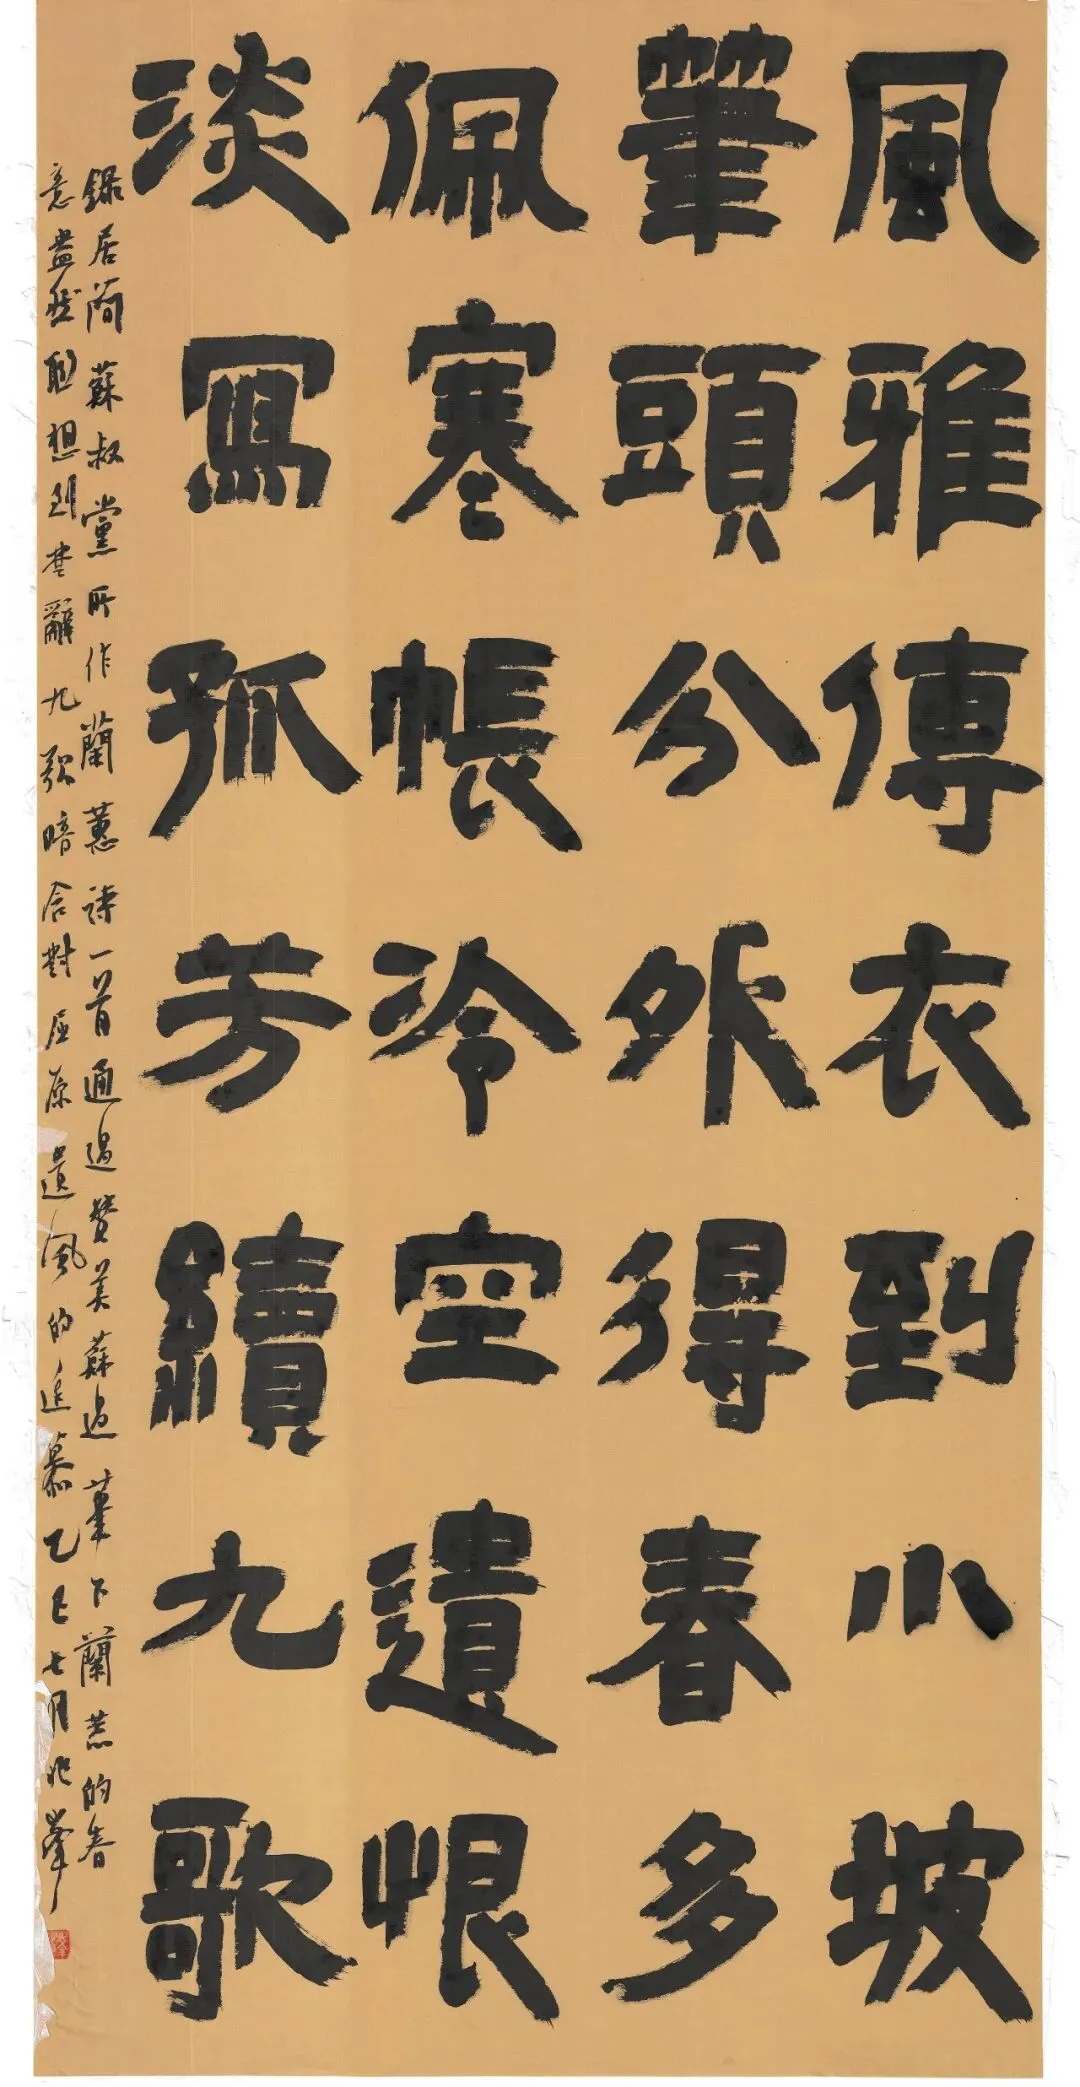 風雅傳衣到小坡
筆頭分外得春多
佩寒帳冷空遺恨
淡寫孤芳續九歌
錄居簡蘇叔黨所作蘭蕙詩一首通過贊美蘇過筆下蘭蕙的春
意盎然聯想到楚辭九歌暗含對屈原遺風的追慕乙巳七月兆峯